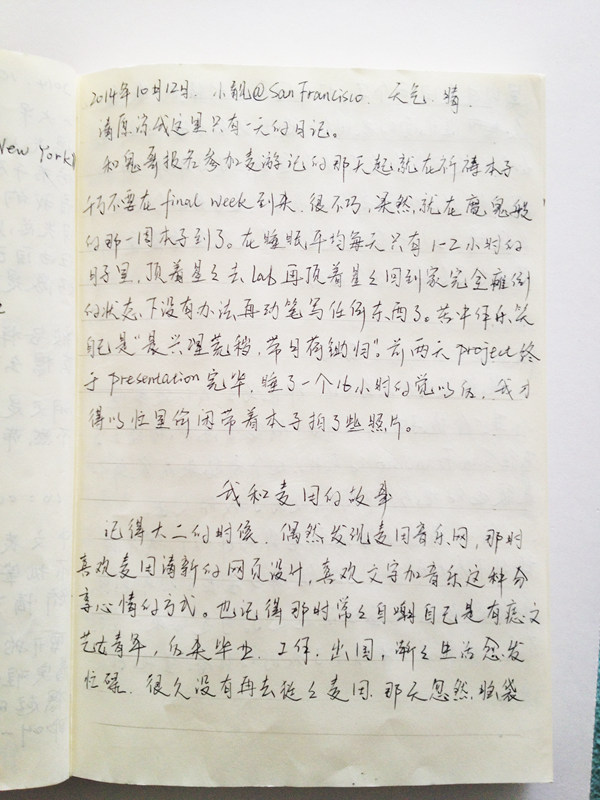 New York
2014年10月12日. 小靓@San Francisco. 天气. 晴.
请原谅我这里只有一天的日记。
和鬼哥报名参加麦游记的那天起就在祈祷本子
千万不要在final week到来. 很不巧, 果然, 就在魔鬼般
的那一周本子到了。在睡眠平均每天只有1-2小时的
日子里, 顶着星星去Lab再顶着星星回到家完全瘫倒
的状态下没有办法再动笔写任何东西了。苦中作乐笑
自己是"晨兴理荒秽, 带月荷锄归"。前两天project终
于presentation完毕, 睡了一个16小时的觉以后, 我才
得以忙里偷闲带着本子拍了些照片。
我和麦田的故事
记得大二的时候. 偶然发现麦田音乐网, 那时
喜欢麦田清新的网页设计, 喜欢文字加音乐这种分
享心情的方式。也记得那时常常自嘲自己是有痣文
艺女青年, 后来毕业. 工作. 出国, 渐渐生活愈发
忙碌. 很久没有再去逛逛麦田. 那天忽然. 脑袋